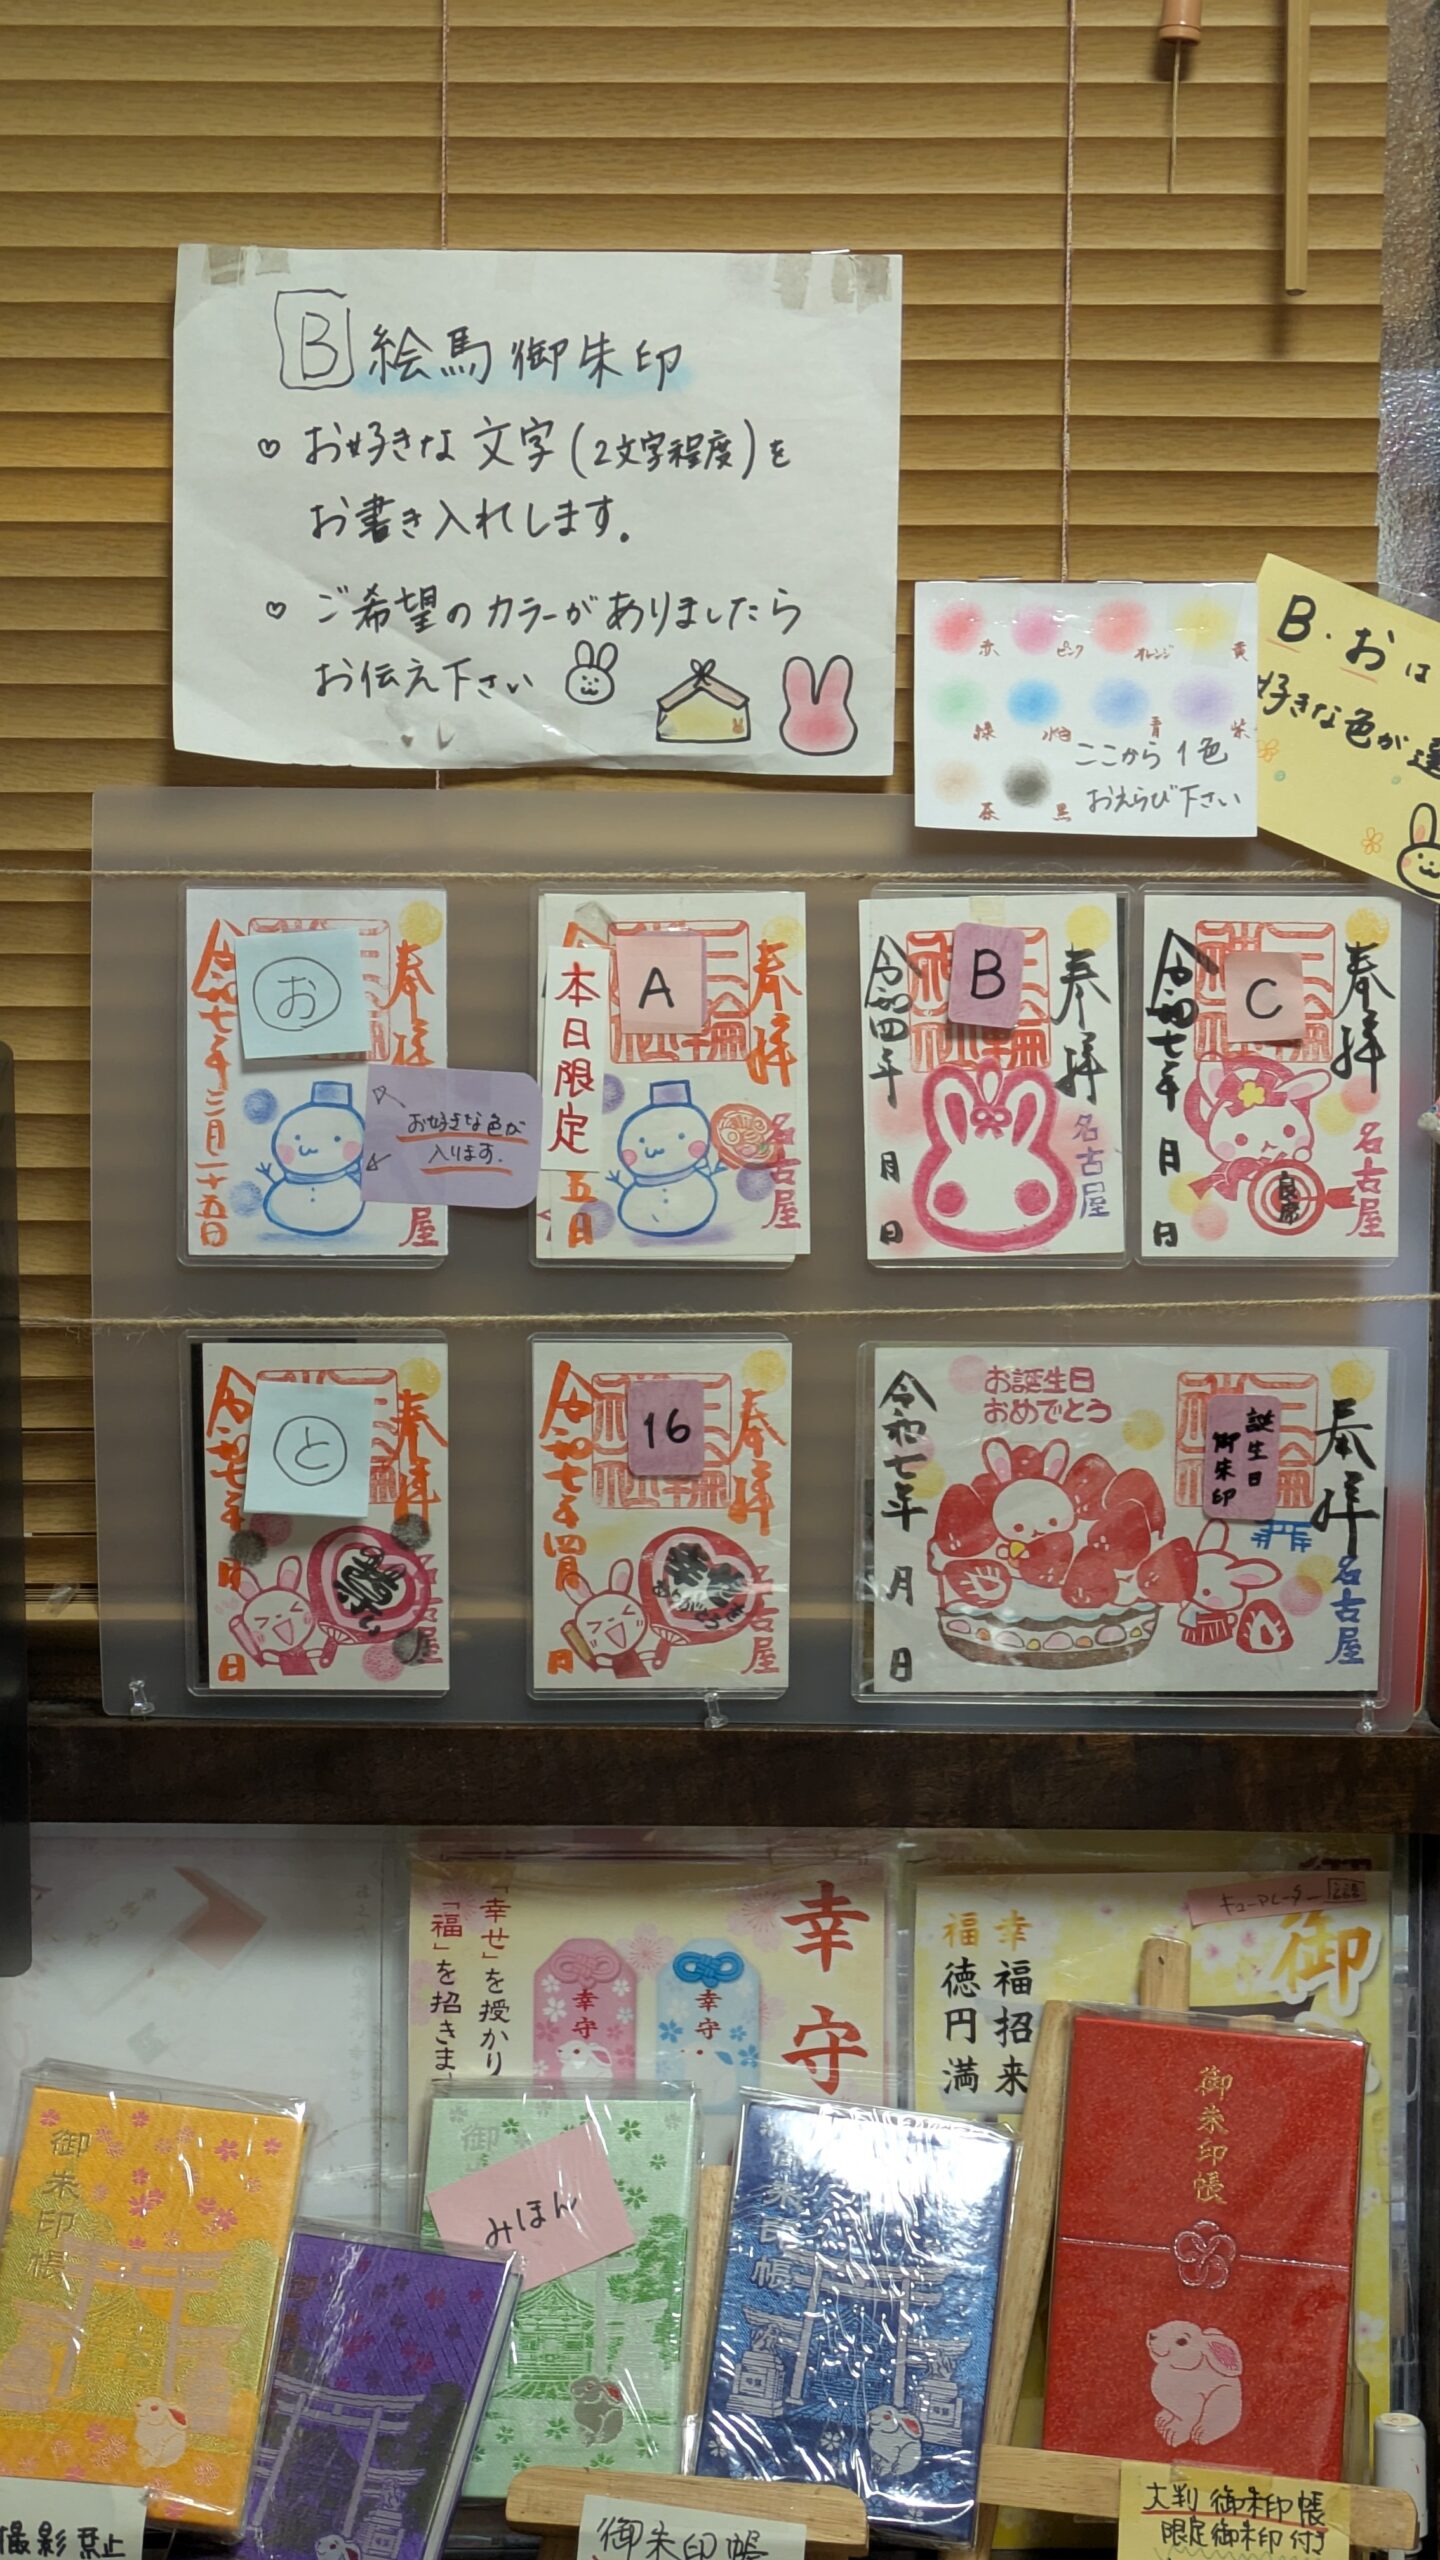 B 絵馬御朱印
♡ お好きな文字(2文字程度)を
お書き入れします。
♡ ご希望のカラーがありましたら
お伝え下さい
赤 ピンク オレンジ 黄
緑 水色 青 紫
茶 黒
ここから1色
おえらび下さい
B・おは
好きな色が選
お
奉拝
令和七年三月二十五日
屋
お好きな色が
入ります。
A
本日限定
奉拝
名古屋
五日
B
奉拝
令和四年 月 日
名古屋
C
奉拝
令和七年 月 日
名古屋
と
奉拝
令和七年 月 日
名古屋
16
奉拝
令和七年四月 日
名古屋
お誕生日
おめでとう
誕生日
御朱印
奉拝
令和七年 月 日
名古屋
幸守
「幸せ」を授かり
「福」を招きます
幸守
幸守
幸福招来
福徳円満
御
御朱印帳
御朱印帳
みほん
御朱印帳
御朱印帳
撮影禁止
大判御朱印帳
限定御朱印付